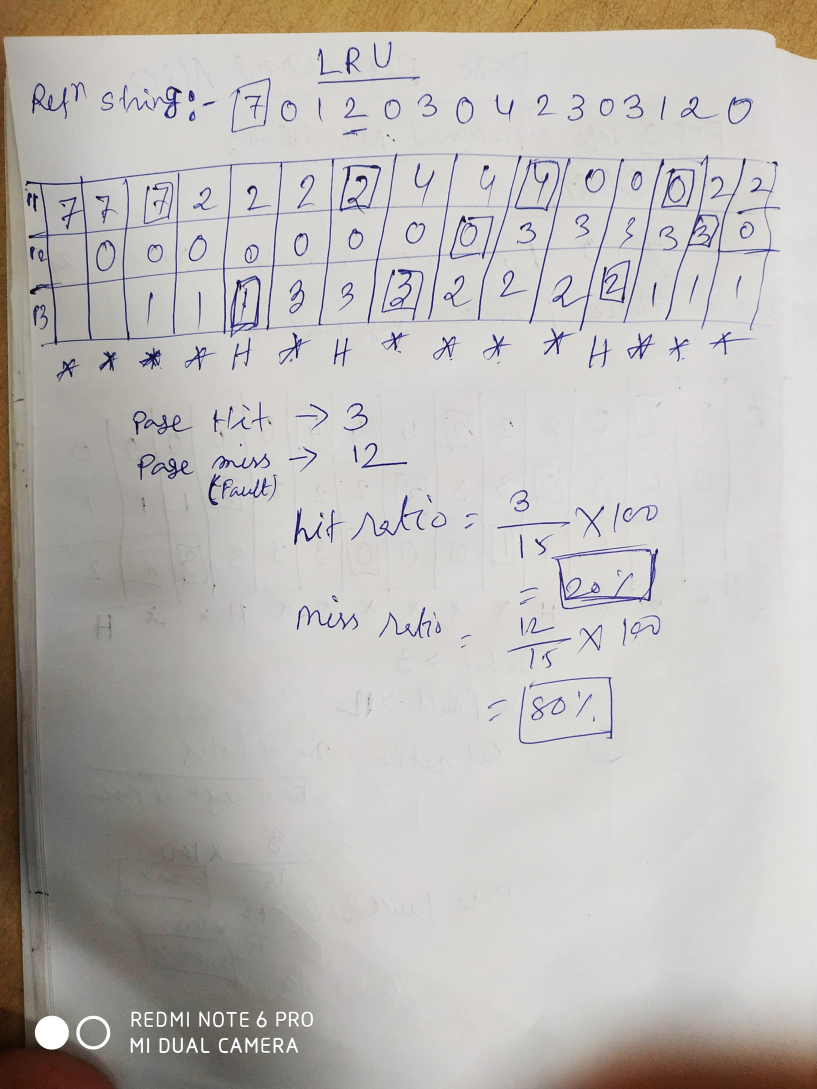 LRU
Refⁿ String:- 7 0 1 2 0 3 0 4 2 3 0 3 1 2 0
7 7 7 2 2 2 2 4 4 4 0 0 0 2 2
0 0 0 0 0 0 0 0 3 3 3 3 3 0
1 1 1 3 3 3 2 2 2 2 1 1 1
* * * * H * H * * * * H * * *
Page Hit → 3
Page miss → 12
(Fault)
hit ratio = 3/15 × 100
= 20%
Miss ratio = 12/15 × 100
= 80%
REDMI NOTE 6 PRO
MI DUAL CAMERA